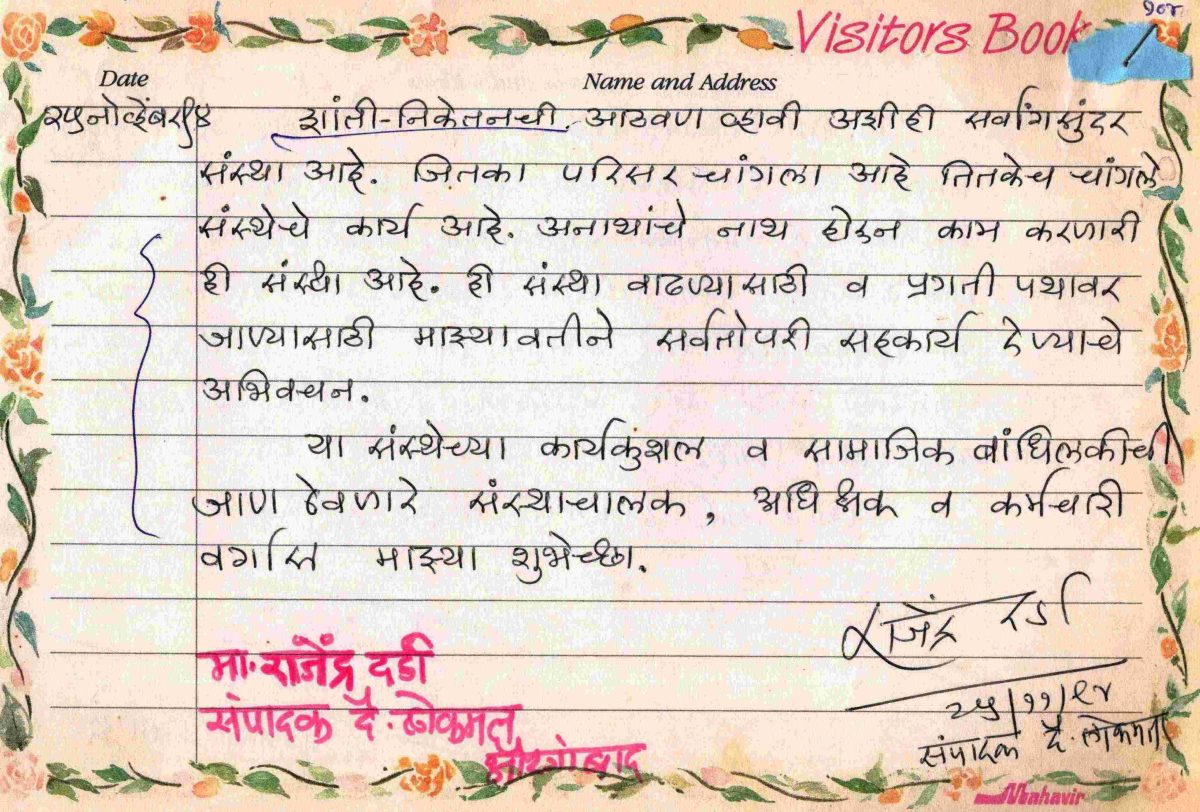 १०४
Visitors Book
Date
Name and Address
२५ नोव्हेंबर ९४
शांती-निकेतनची आठवण व्हावी अशीही सर्वांगसुंदर
संस्था आहे. जितका परिसर चांगला आहे तितकेच चांगले
संस्थेचे कार्य आहे. अनाथांचे नाथ होऊन काम करणारी
ही संस्था आहे. ही संस्था वाढण्यासाठी व प्रगती पथावर
जाण्यासाठी माझ्यावतीने सर्वतोपरी सहकार्य देण्याचे
अभिवचन.
या संस्थेच्या कार्यकुशल व सामाजिक बांधिलकीची
जाण ठेवणारे संस्थाचालक, अधिक्षक व कर्मचारी
वर्गास माझ्या शुभेच्छा.
राजेंद्र दर्डा
२५/११/९४
संपादक दै. लोकमत
मा. राजेंद्र दर्डा
संपादक दै. लोकमत
औरंगाबाद
Mahavir